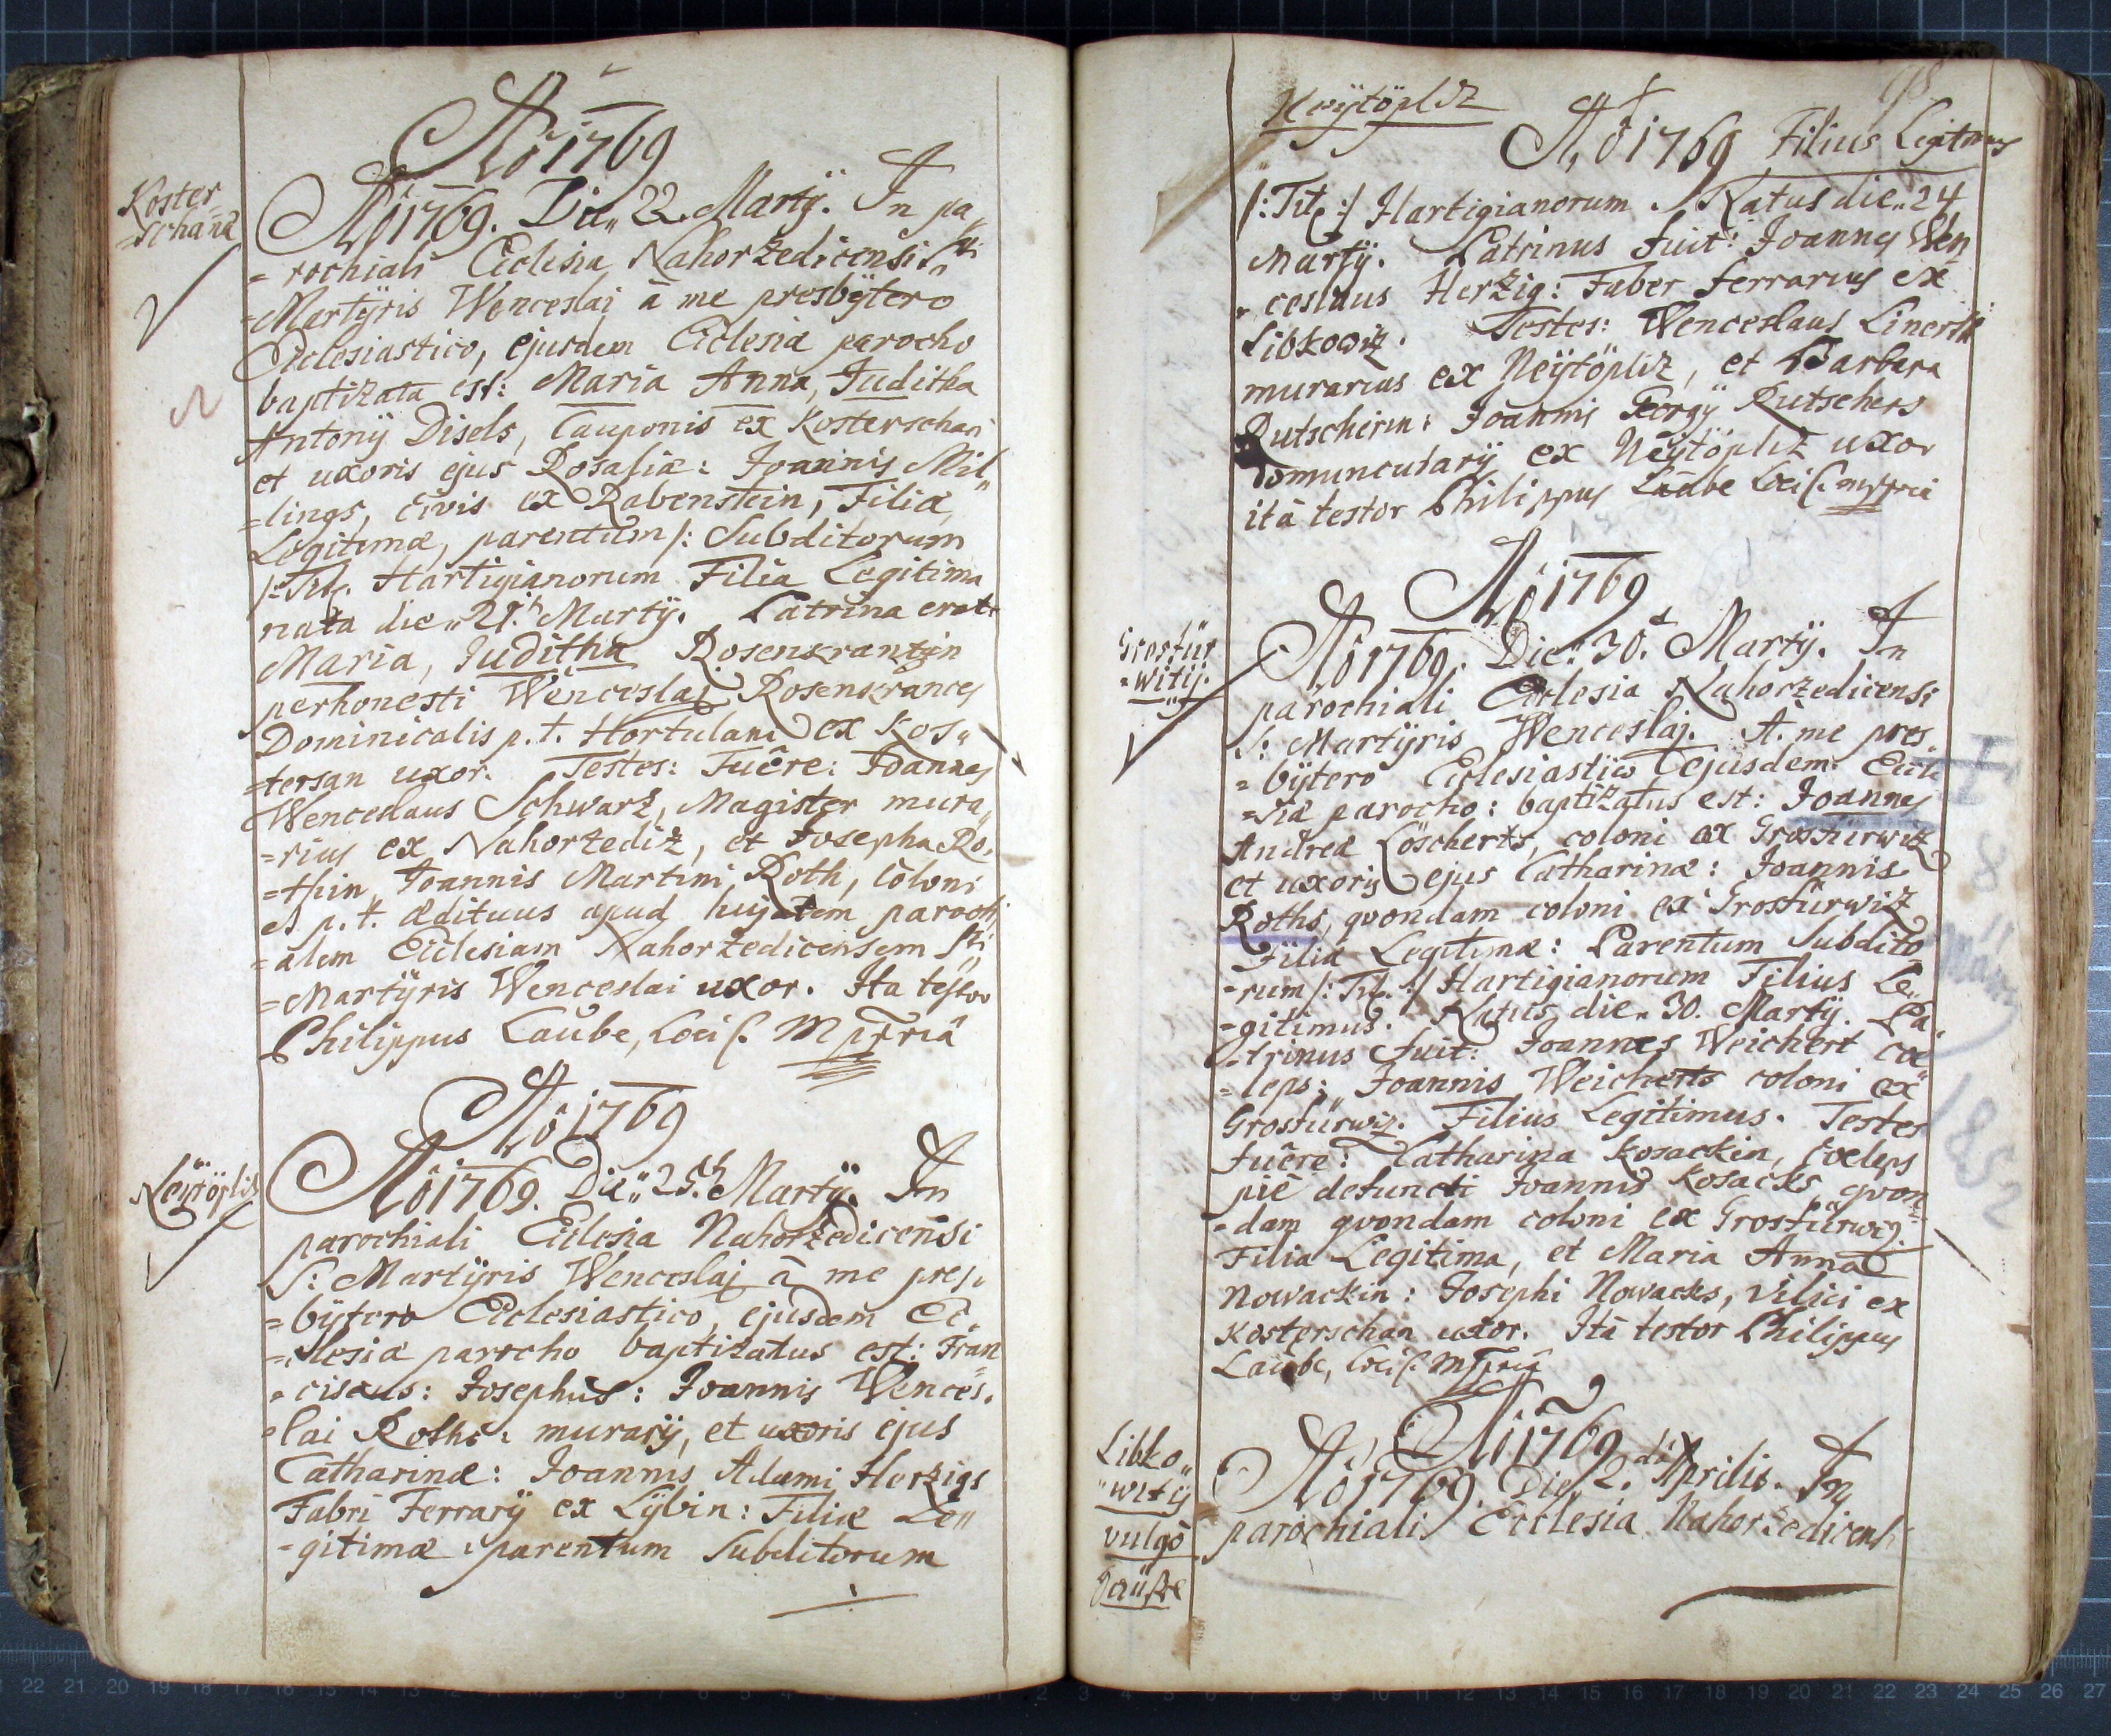 Aõ 1769
Koster
=schanæ
Aõ 1769. Die„ 22. Martÿ. In pa„
=rochiali Ecclesia Nahoržedicensi Sti
=Martÿris Wenceslai à me presbÿtero
Ecclesiastico, ejusdem Ecclesiæ parocho
baptižata est: Maria Anna, Juditha
Antonÿ Disels, Cauponis ex Kosterschan
et uxoris ejus Rosaliæ: Joannis Mil„
=lings, civis ex Rabenstein, Filiæ
Legitimæ, parentum /: Subditorum
/: Tit. Hartigianorum Filia Legitima
nata die„ 21. Martÿ. Patrina erat:
Maria, Juditha Rosenkrantzin
perhonesti Wenceslai Rosenkrances
Dominicalis p. t. Hortulani ex Kos„
=tersan uxor. Testes: Fuêre: Joannes
Wenceslaus Schwarž, Magister mura„
=rius ex Nahoržediž, et Josepha Ro„
=thin Joannis Martini Roth, coloni
et p. t. ædituus apud hujatem parochi
=alem Ecclesiam Nahoržedicensem Sti
=Martÿris Wenceslai uxor. Ita testor
Philippus Laube, Loci C. Mppria
Aõ 1769
Neÿtöpliz
Aõ 1769. Die„ 25. Martÿ. In
parochiali Ecclesia Nahoržedicensi
S: Martÿris Wenceslaj à me pres„
=bÿtero Ecclesiastico, ejusdem Ec„
=clesiæ parocho baptižatus est: Fran
=ciscus: Josephus: Joannis Wences„
=lai Roths: murarÿ, et uxoris ejus
Catharinæ: Joannis Adami Heržigs
Fabri Ferrarÿ ex Lÿbin: Filiæ Le„
=gitimæ parentum Subditorum
98
Neÿtöpliz
Aõ 1769 Filius Legitimus
/: Tit :/ Hartigianorum. Natus die„ 24
Martÿ. Patrinus fuit: Joannes Wen
=ceslaus Heržig: Faber ferrarius ex
Libkowiz. Testes: Wenceslaus Linerth
murarius ex Neÿtöpliž, et Barbara
Rutscherin: Joannis Georgÿ Rutschers
Domuncularÿ ex Neÿtöpliž uxor
ità testor Philippus Laube Loci C. mppria
Aõ 1769
Grostür
=witz.
Aõ 1769. Die„ 30. Martÿ. In
parochiali Ecclesia Nahoržedicensi
S: Martÿris Wenceslaj. A. me pres„
=bÿtero Ecclesiastico ejusdem Eccle
=siæ parocho: baptižatus est: Joannes
Andreæ Löscherts, coloni ex Grostürwiz
et uxoris ejus Catharinæ: Joannis
Roths, quondam coloni ex Grostürwiz
Filiæ Legitimæ: Parentum Subdito
=rum /: Tit. :/ Hartigianorum Filius Le„
=gitimus. Natus die„ 30. Martÿ. Pa„
=trinus fuit: Joannes Weichert cœ„
=lebs: Joannis Weicherts coloni ex
Grostürwiz. Filius Legitimus. Testes
fuêre: Catharina Kosackin, cœlebs
piè defuncti Joannis Kosacks quon„
=dam quondam coloni ex Grostürwiz.
Filia Legitima, et Maria Anna
Nowackin: Josephi Nowacks, vilici ex
Kosterschan uxor. Ità testor Philippus
Laube, Loci C. Mppria
Aõ 1769
Libko„
„witz
vulgò
Aõ 1769. Die 2. da Aprilis. In
parochiali Ecclesia Nahoržedicensi